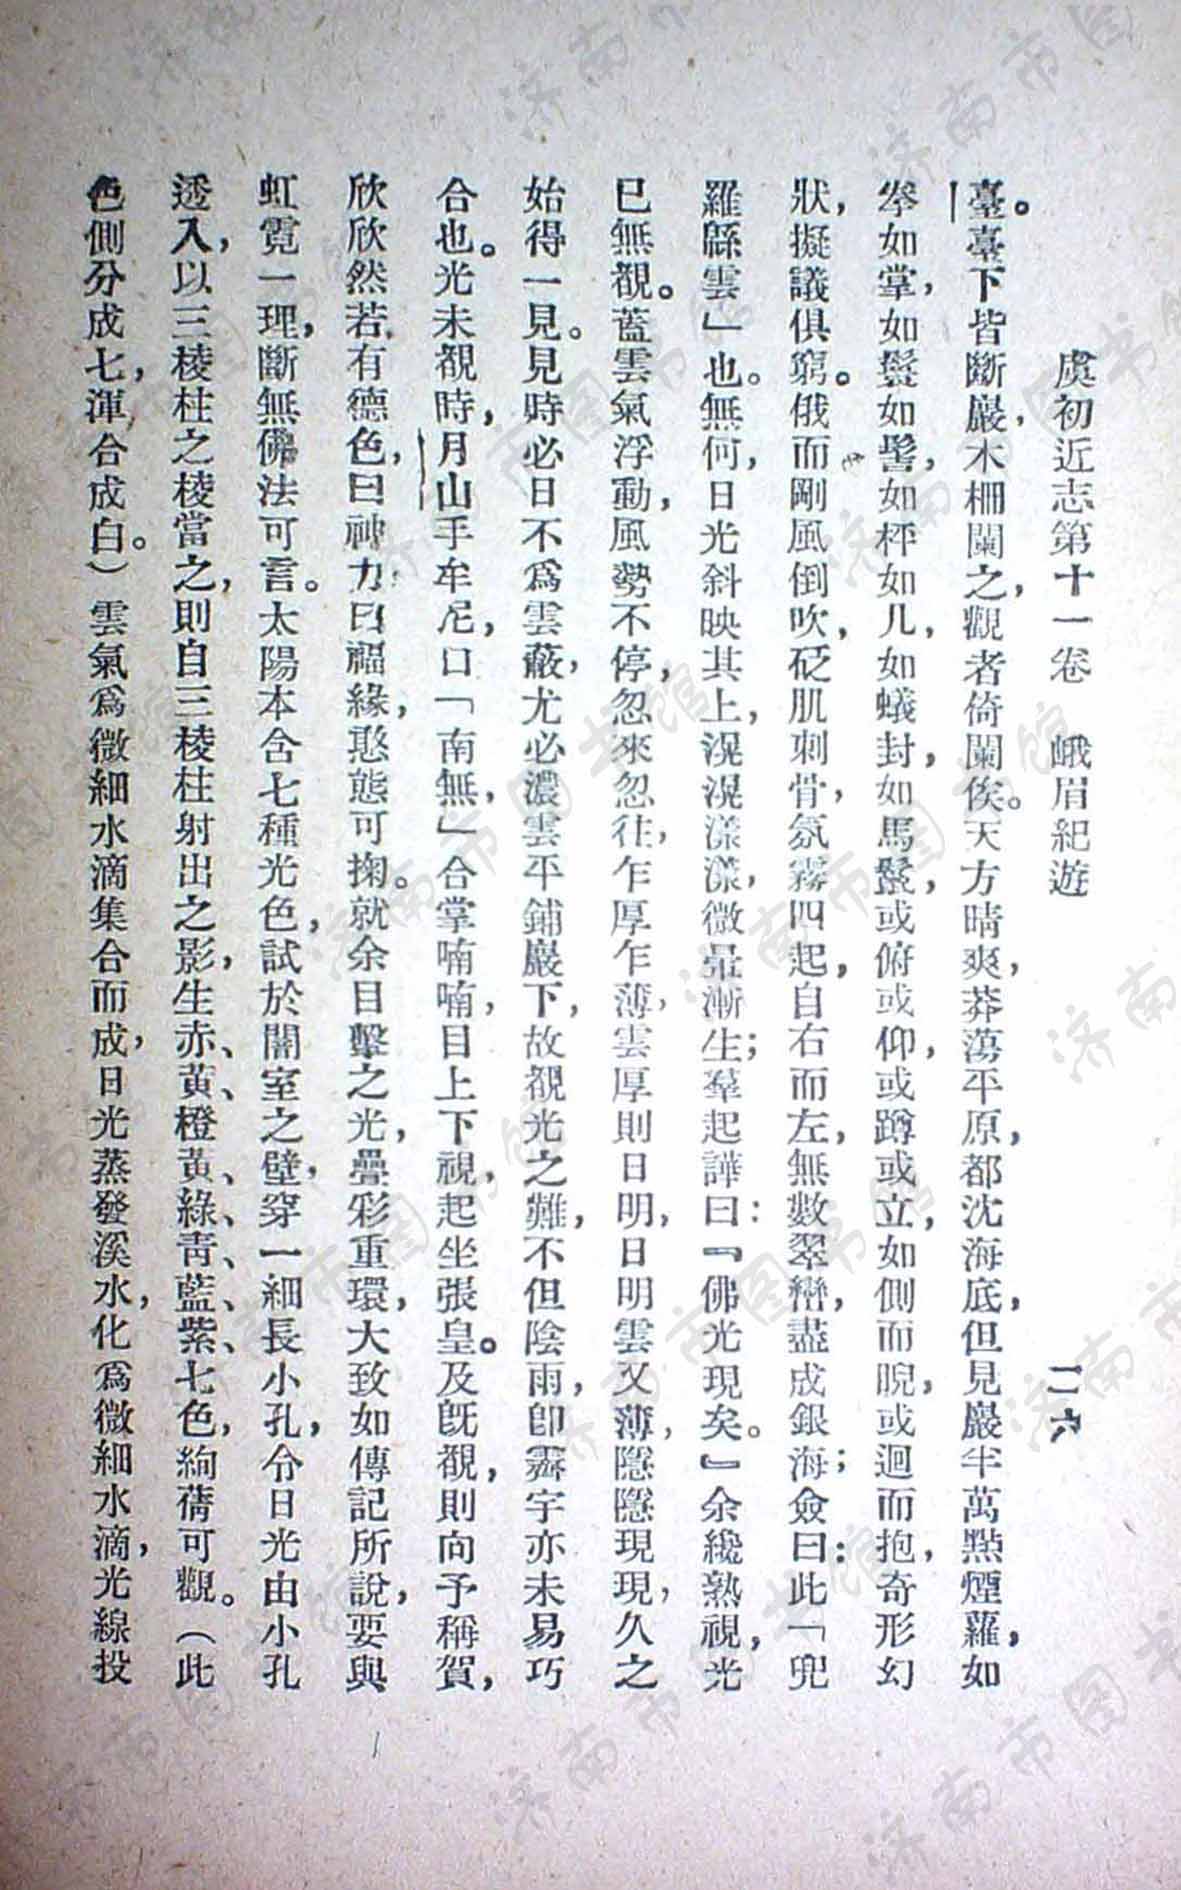 虞初近志第十一卷　峨眉紀遊　二六
臺。臺下皆斷巖，木柵闌之，觀者倚闌俟。天方晴爽，莽蕩平原，都沈海底，但見巖半萬點煙蘿，如
拳如掌，如鬟如髻，如枰如几，如蟻封，如馬鬣，或俯或仰，或蹲或立，如側而睨，或迴而抱，奇形幻
狀，擬議俱窮。俄而剛風倒吹，砭肌刺骨，氛霧四起，自右而左，無數翠巒，盡成銀海；僉曰：此「兜
羅緜雲」也。無何，日光斜映其上，滉滉漾漾，微暈漸生；羣起譁曰：『佛光現矣。』余纔熟視，光
已無覩。蓋雲氣浮動，風勢不停，忽來忽往，乍厚乍薄，雲厚則日明，日明雲又薄，隱隱現現，久之
始得一見。見時必日不爲雲蔽，尤必濃雲平鋪巖下，故覩光之難，不但陰雨，卽霽宇亦未易巧
合也。光未覩時，月山手牟尼，口「南無，」合掌喃喃，目上下視，起坐張皇。及旣覩，則向予稱賀，
欣欣然若有德色，曰神力曰福緣，憨態可掬。就余目擊之光，疊彩重環，大致如傳記所說，要與
虹霓一理，斷無佛法可言。太陽本含七種光色，試於闇室之壁，穿一細長小孔，令日光由小孔
透入，以三棱柱之棱當之，則自三棱柱射出之影，生赤、黃、橙黃、綠、青、藍、紫、七色，絢蒨可觀。（此
色側分成七，渾合成白。）雲氣爲微細水滴集合而成，日光蒸發溪水，化爲微細水滴，光線投
济南市图书馆